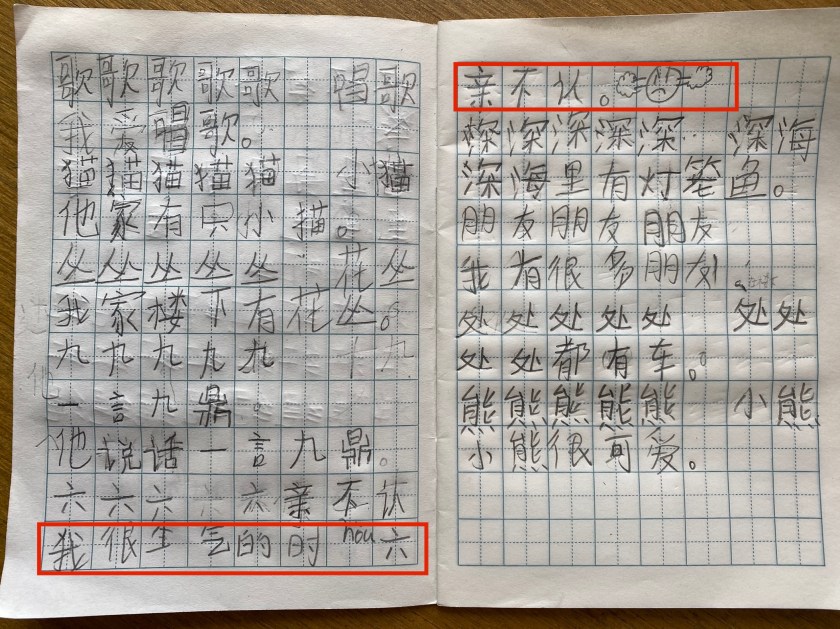 歌歌歌歌歌 唱歌
我爱唱歌。
猫猫猫猫猫 小猫
他家有只小猫。
丛丛丛丛丛 花丛
我家楼下有花丛。
九九九九九
一言九鼎。
他说话一言九鼎。
六六六六六亲不认
我很生气的时hou六
亲不认。
深深深深深 深海
深海里有灯笼鱼。
朋友朋友朋友
我有很多朋友。
处处处处处 处处
处处都有车。
熊熊熊熊熊 小熊
小熊很可爱。